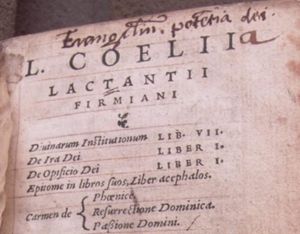 Evangeliũ. potẽtia dei.
L. COELII
LACTANTII
FIRMIANI
Diuinarum Institutionum LIB. VII.
De Ira Dei LIBER I.
De Opificio Dei LIBER I.
Epitome in libros suos, Liber acephalos.
Phœnice.
Carmen de Resurrectione Dominica.
Passione Domini.